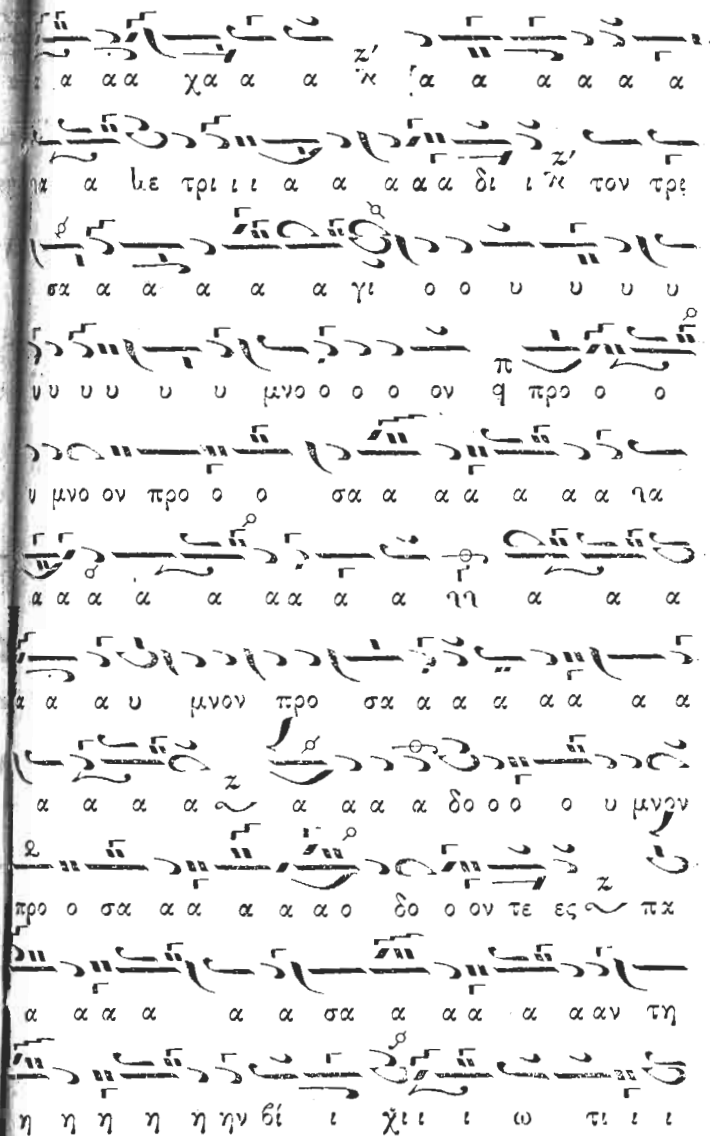 α αα χα α α ζ' α α α α α α
α με τρι ι ι α α α α α δι ι ζ' τον τρι
σα α α α α α γι ο ο υ υ υ υ
υ υ υ υ υ υ μνο ο ο ο ον π q προ ο ο
υ μνο ον προ ο ο σα α α α α α α
α α α α α α α α α α α α
α α α υ μνον προ σα α α α α α α α
α α α α ζ α α α α δο ο ο ο υ μνον
προ ο σα α α α α α ο δο ο ον τε ες ζ πα
α α α α α α σα α α α α α αν τη
η η η η η ην βί ι χι ι ι ω τι ι ι